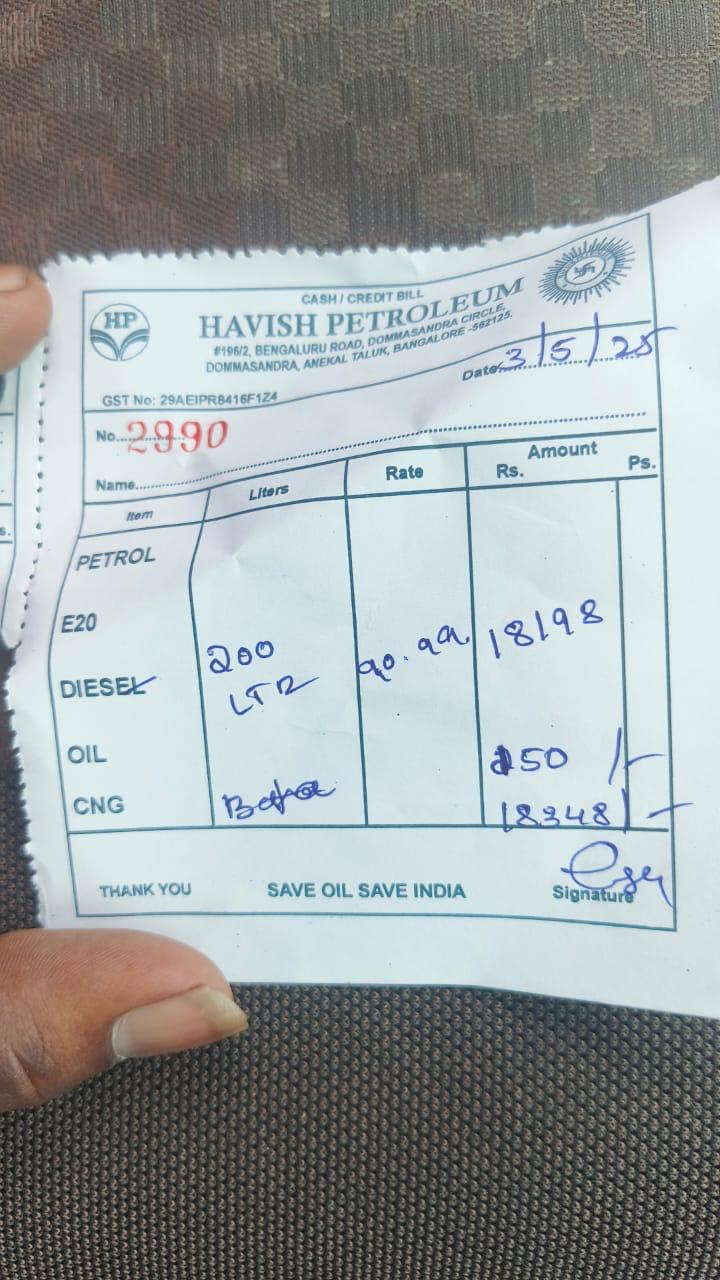 CASH / CREDIT BILL
HP
HAVISH PETROLEUM
#196/2, BENGALURU ROAD, DOMMASANDRA CIRCLE,
DOMMASANDRA, ANEKAL TALUK, BANGALORE -562125.
Date 3/5/25
GST No: 29AEIPR8416F1Z4
No. 2990
Name
Item Liters Rate Amount Rs. Ps.
PETROL
E20
DIESEL 200 LTR 90.99 18198
OIL 150 /-
CNG 18348/-
THANK YOU SAVE OIL SAVE INDIA Signature